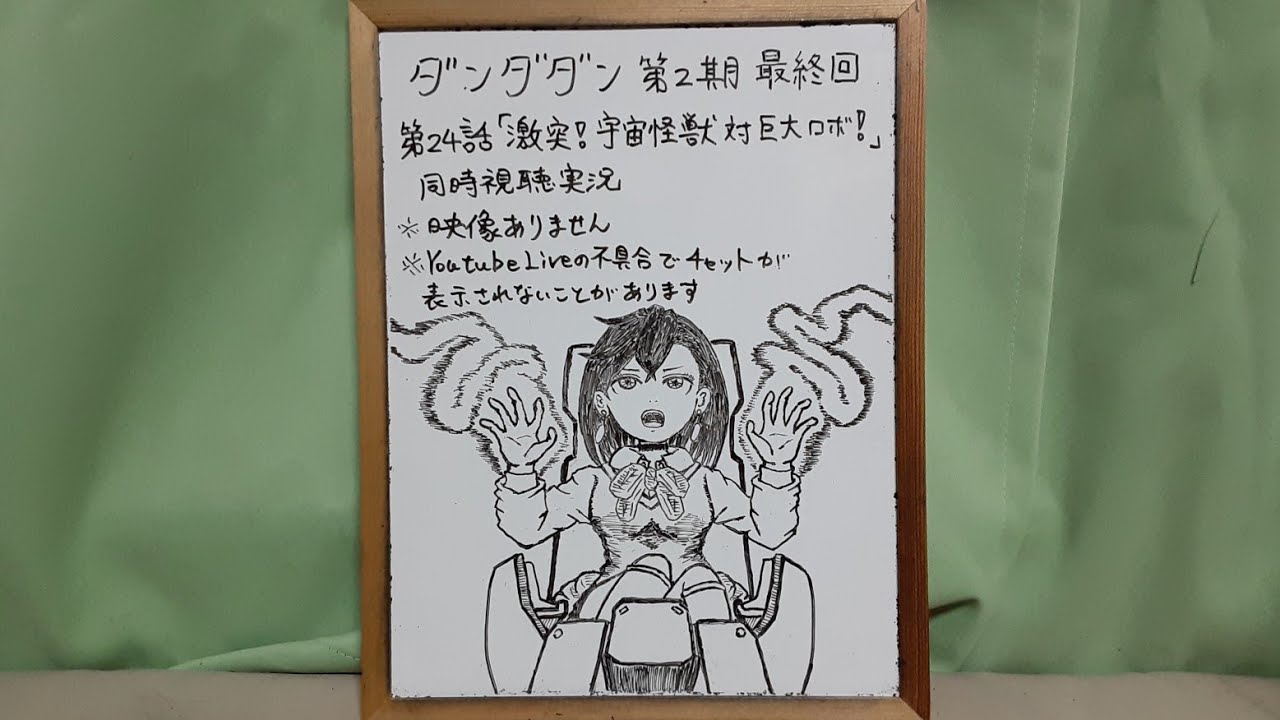 ダンダダン 第2期 最終回
第24話「激突！宇宙怪獣対巨大ロボ！」
同時視聴実況
※映像ありません
※Youtube Liveの不具合でチャットが
表示されないことがあります